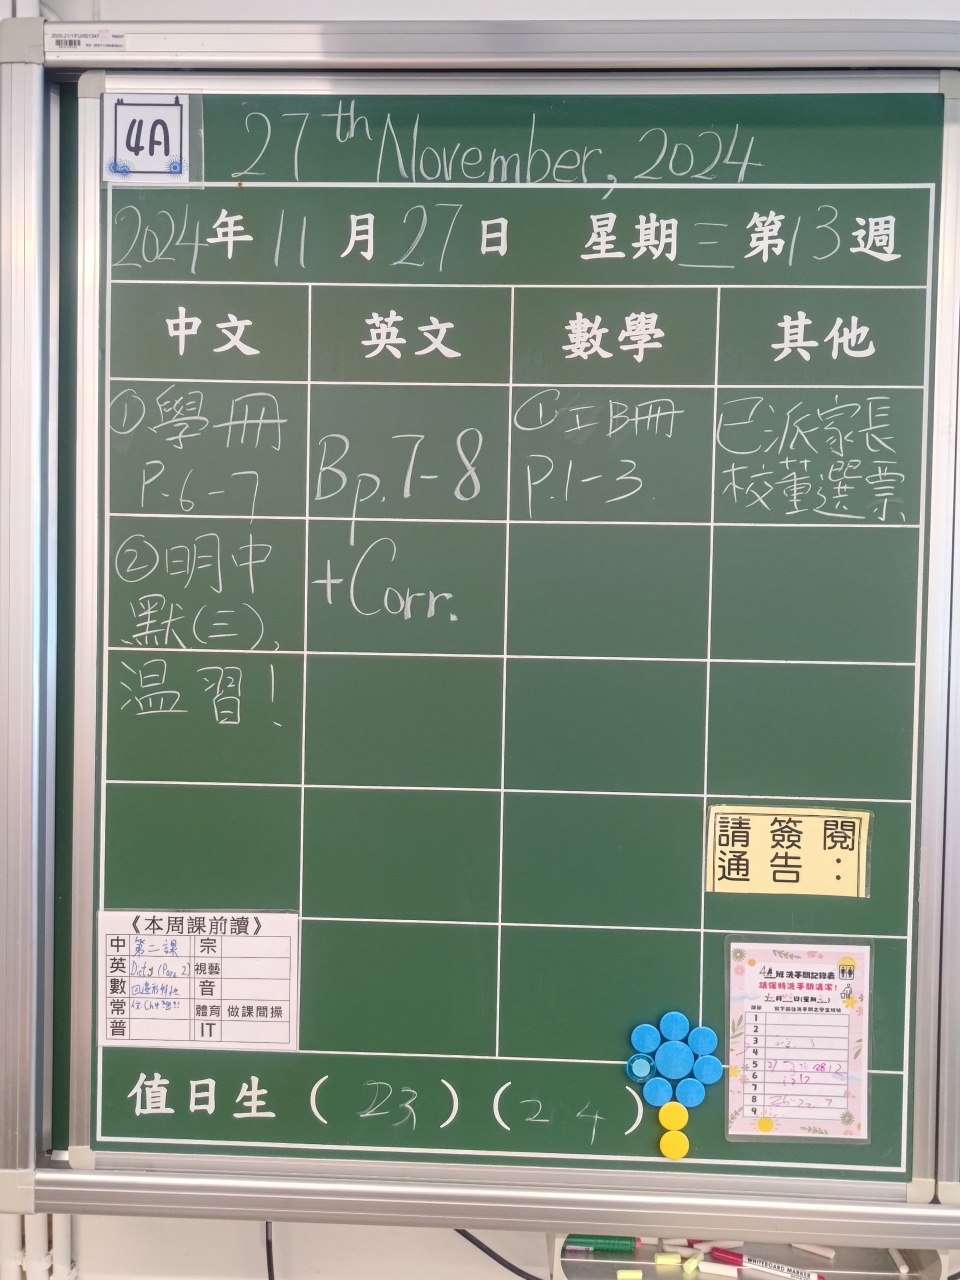 4A
27th November, 2024
2024年11月27日 星期三第13週
中文 英文 數學 其他
①學冊
P.6-7
②明中
默(三),
温習!
Bp.7-8
+Corr.
①工B冊
P.1-3
已派家長
校董選票
請簽閱
通告:
《本周課前讀》
中 第二課 宗
英 視藝
數 音
常 體育 做課間操
普 IT
4A班洗手間記錄表
請保持洗手間清潔!
1
2
3
4
5
6
7
8
9
值日生 (23) (24)
WHITEBOARD MARKER